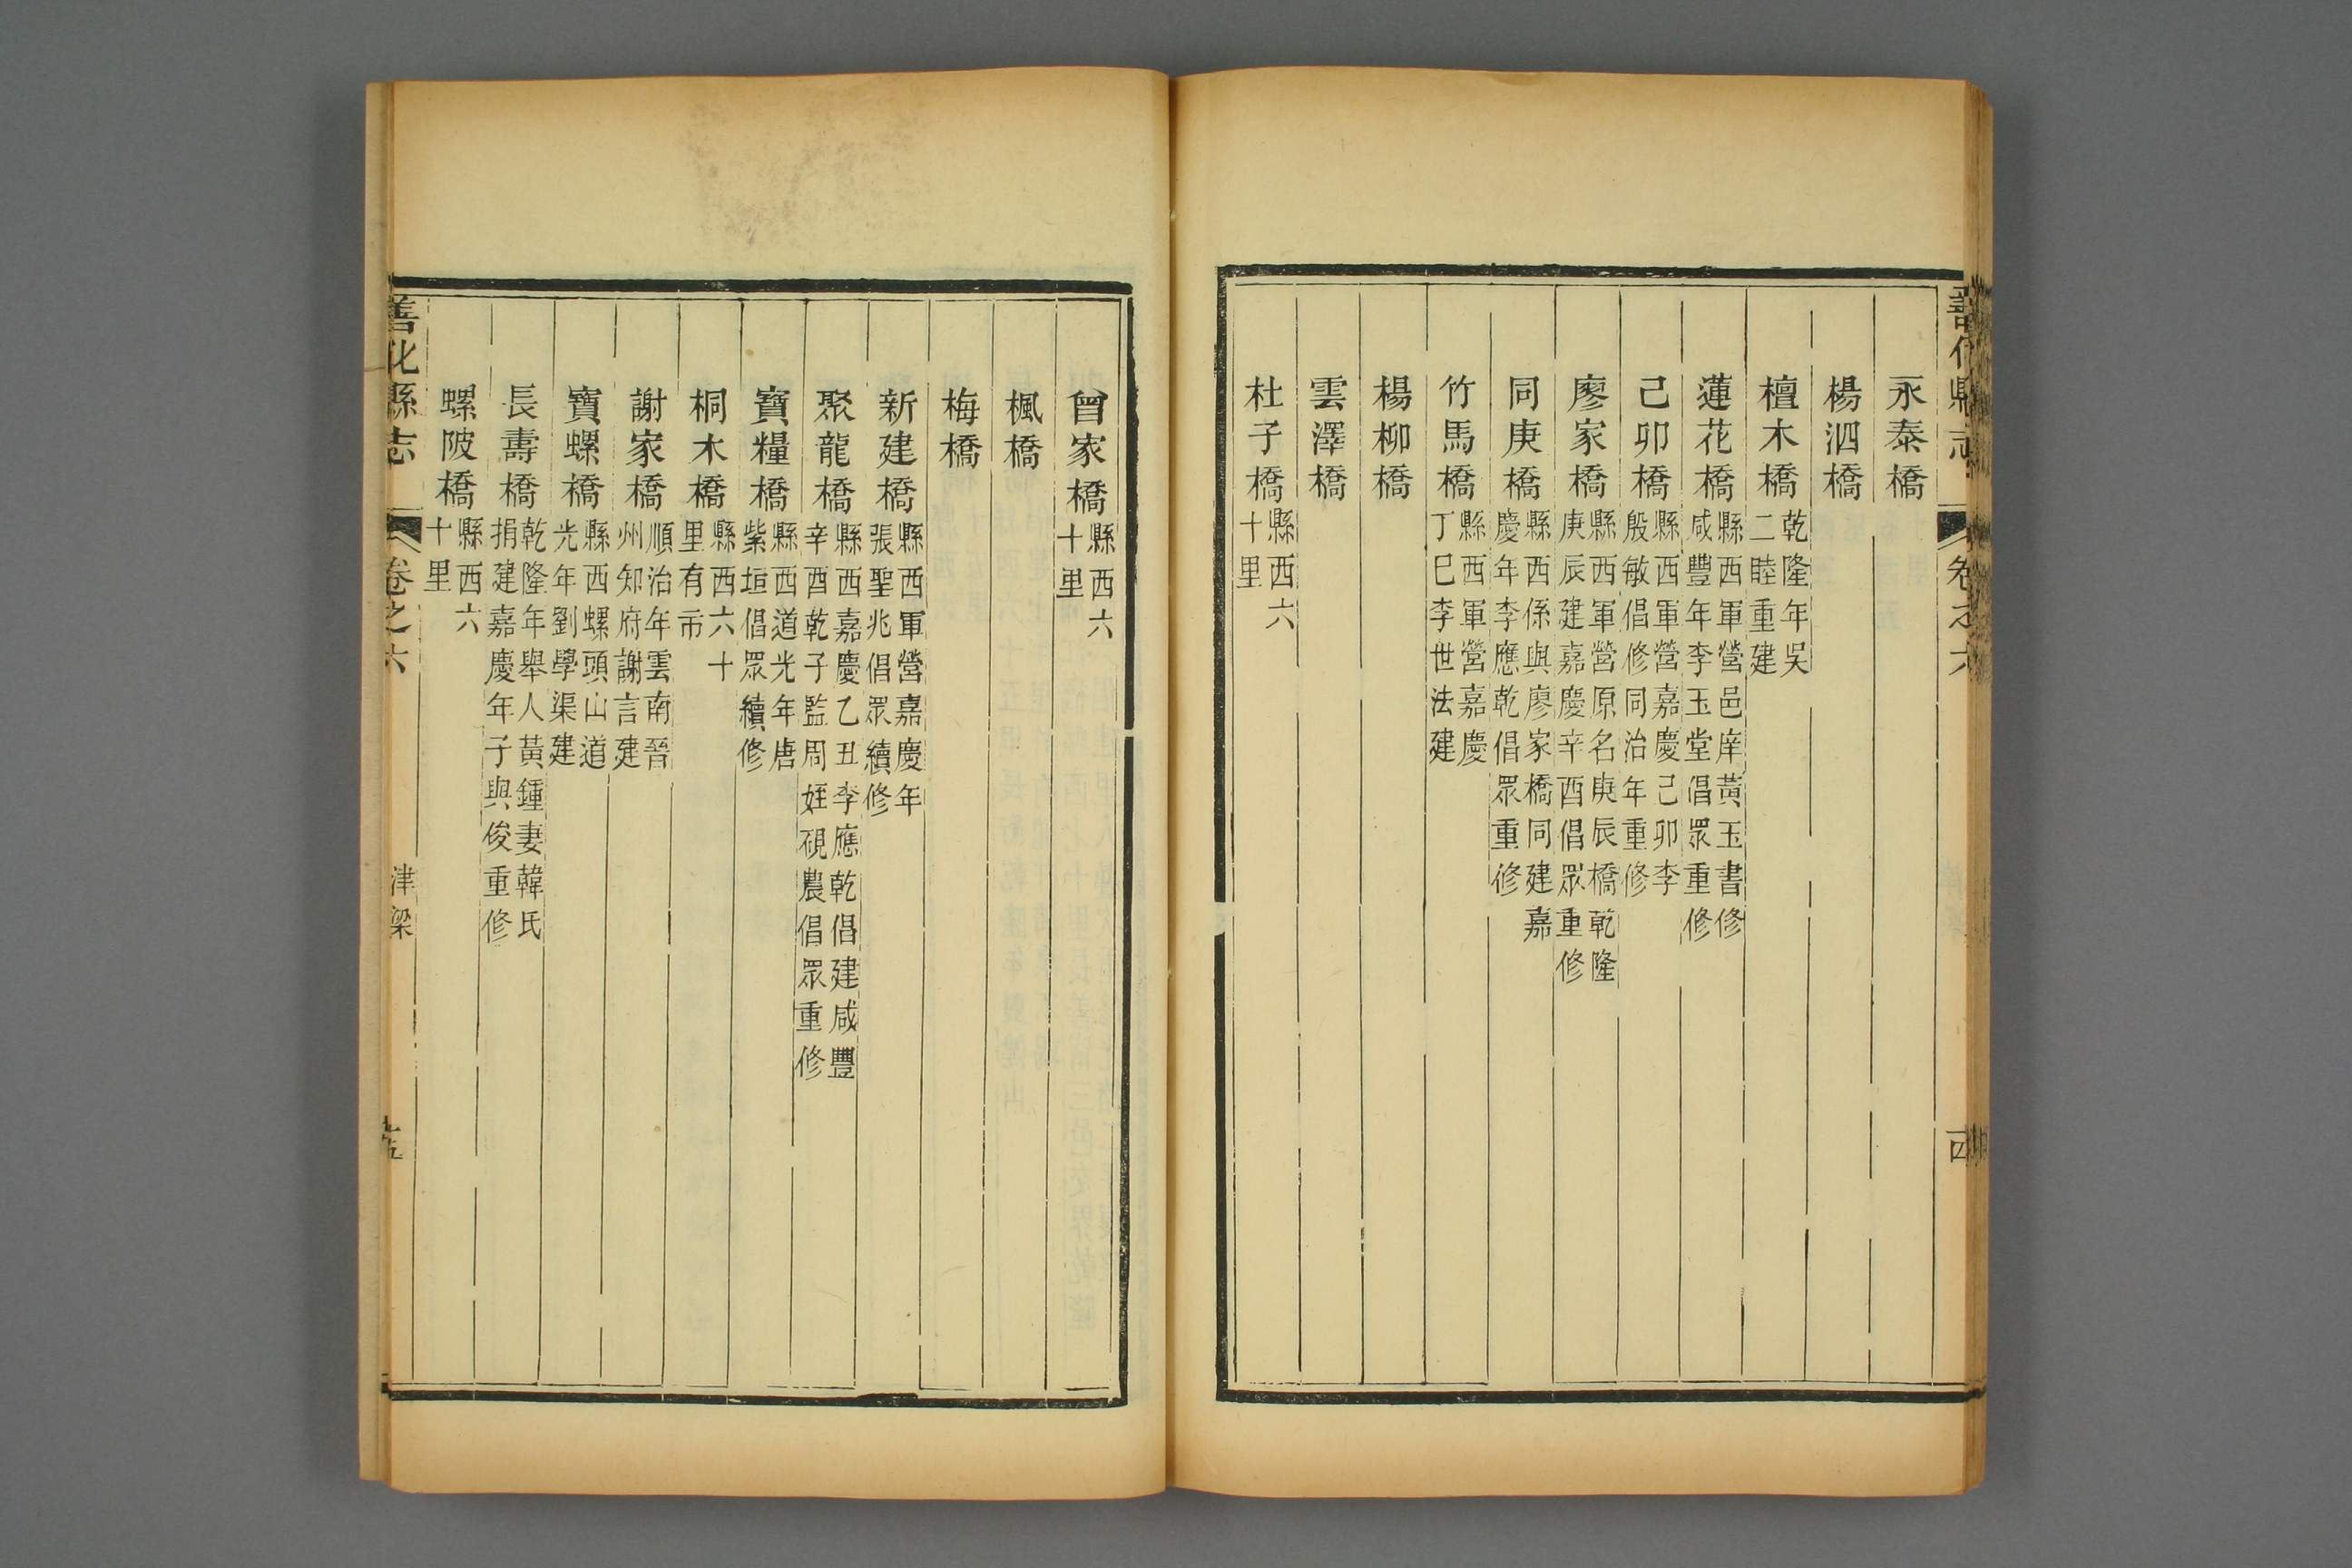 善化縣志 卷之六
永泰橋
楊泗橋
檀木橋 乾隆年吳二睦重建
蓮花橋 縣西軍營邑庠黃玉書修咸豐年李玉堂倡眾重修
己卯橋 縣西軍營嘉慶己卯李殷敏倡修同治年重修
廖家橋 縣西軍營原名庚辰橋乾隆庚辰建嘉慶辛酉倡眾重修
同庚橋 縣西係與廖家橋同建嘉慶年李應乾倡眾重修
竹馬橋 縣西軍營嘉慶丁巳李世法建
楊柳橋
雲澤橋
杜子橋 縣西六十里
曾家橋 縣西六十里
楓橋
梅橋
新建橋 縣西軍營嘉慶年張聖兆倡眾續修
聚龍橋 縣西嘉慶乙丑李應乾倡建咸豐辛酉乾子監周姪硯農倡眾重修
寶糧橋 縣西道光年唐紫垣倡眾續修
桐木橋 縣西六十里有市
謝家橋 順治年雲南晉州知府謝言建
寶螺橋 縣西螺頭山道光年劉學渠建
長壽橋 乾隆年舉人黃鍾妻韓氏捐建嘉慶年子與俊重修
螺陂橋 縣西六十里
善化縣志 卷之六 津梁